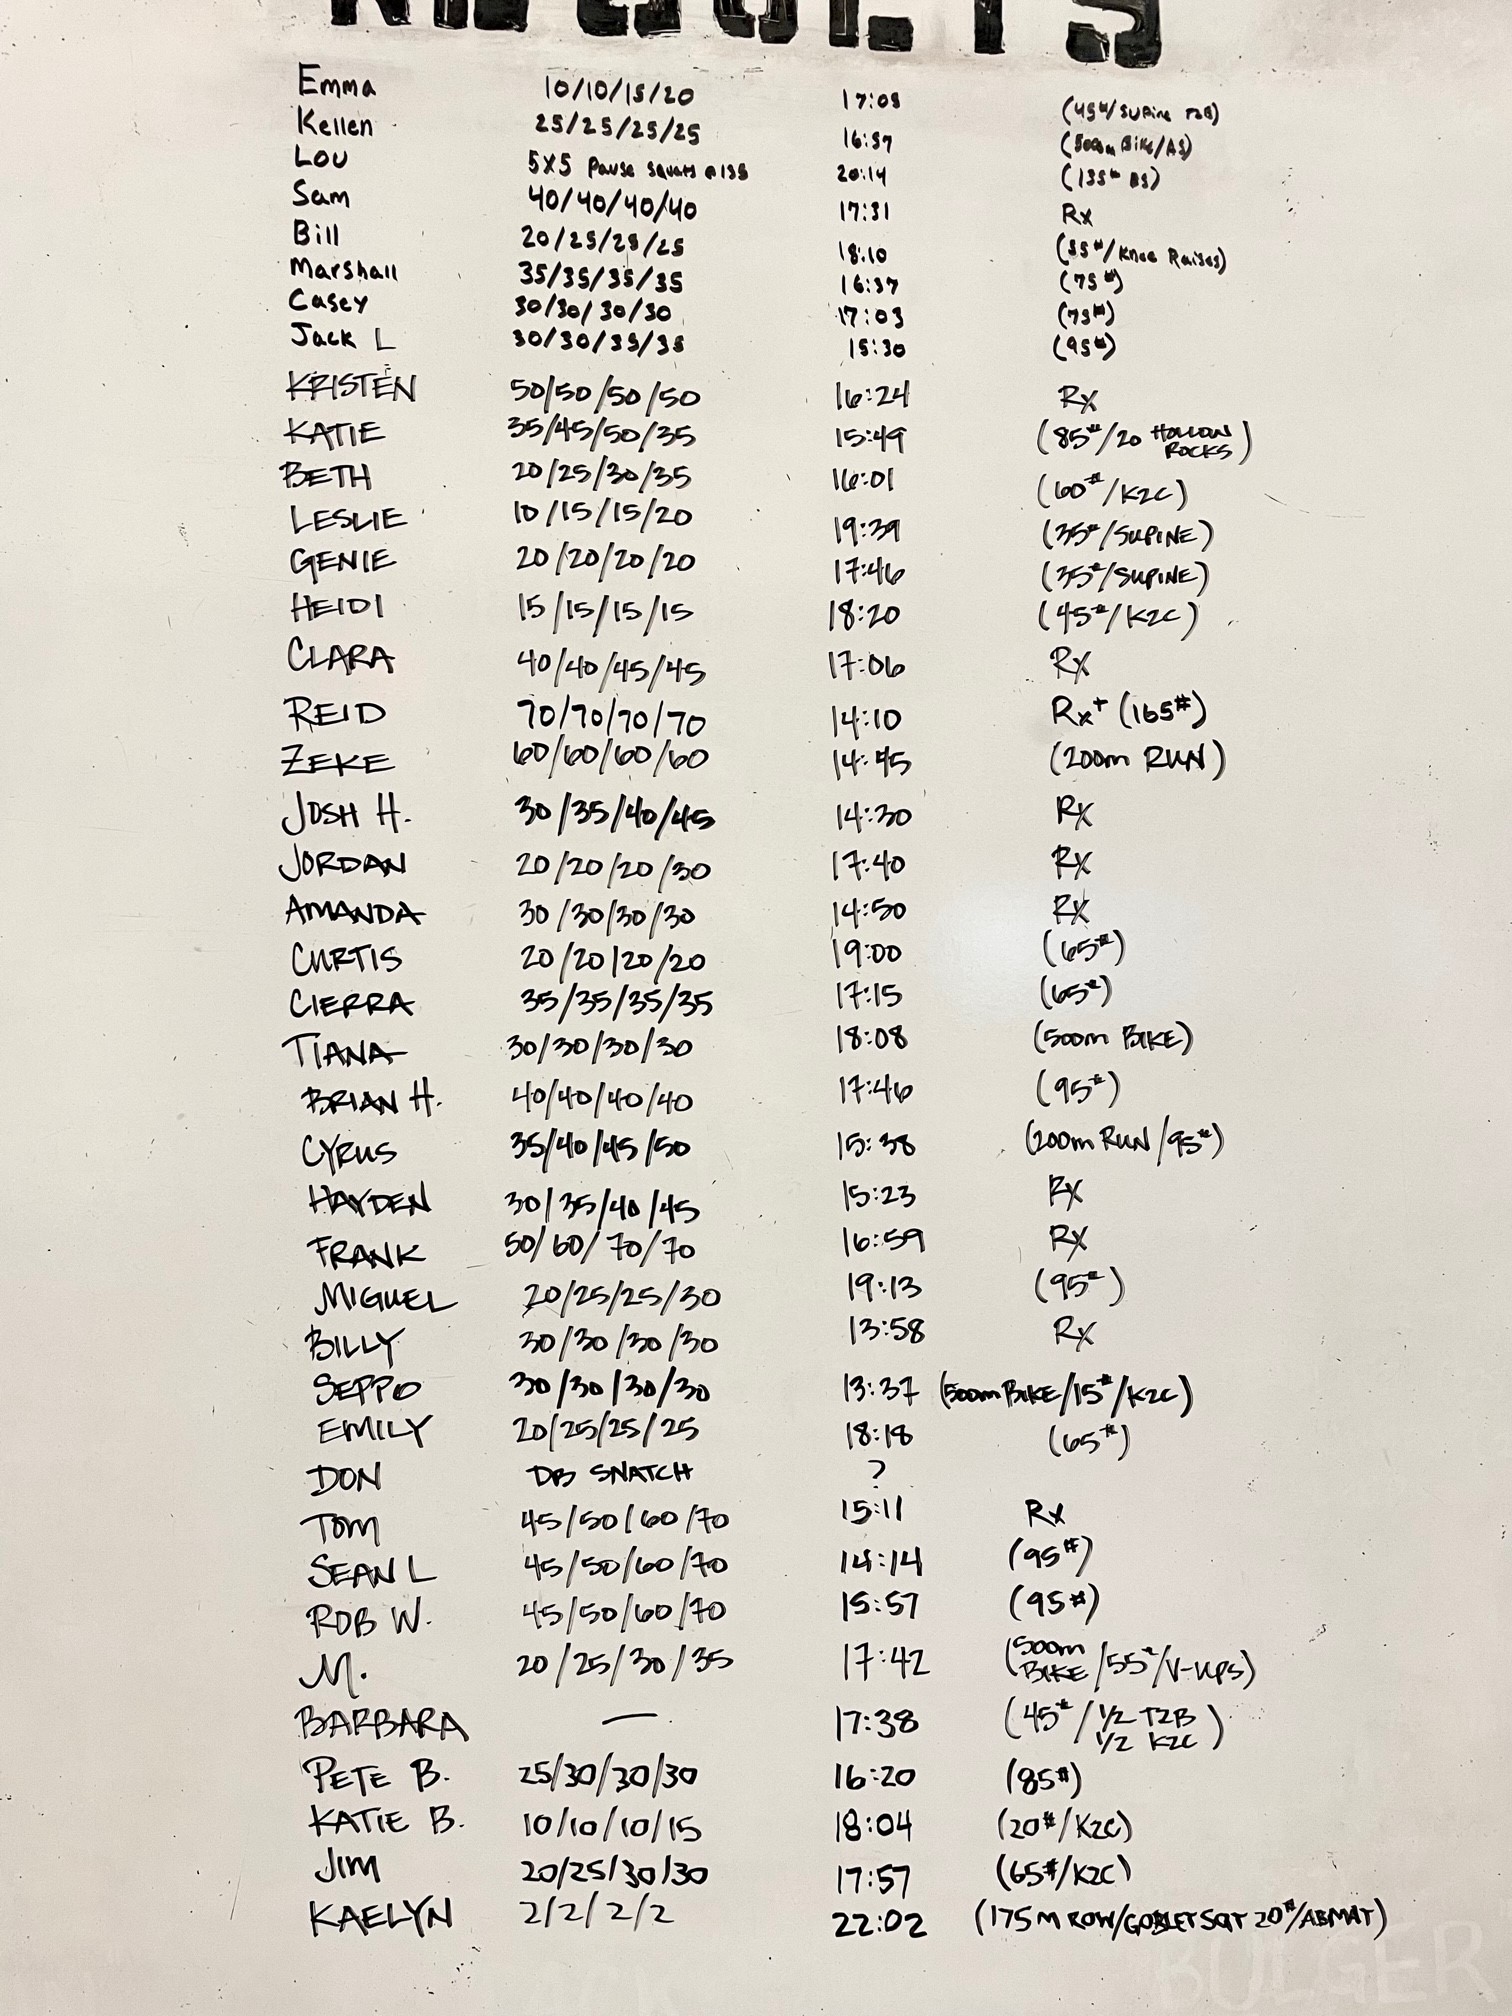 RESULTS
Emma 10/10/15/20 17:08 (45#/Supine T2B)
Kellen 25/25/25/25 16:57 (500m Bike/AS)
Lou 5x5 Pause squats @ 135 20:14 (135# BS)
Sam 40/40/40/40 17:31 Rx
Bill 20/25/25/25 18:10 (55#/Knee Raises)
Marshall 35/35/35/35 16:37 (75#)
Casey 30/30/30/30 17:03 (75#)
Jack L 30/30/35/35 15:30 (95#)
KRISTEN 50/50/50/50 16:24 Rx
KATIE 35/45/50/35 15:49 (85#/20 HOLLOW ROCKS)
BETH 20/25/30/35 16:01 (60#/K2C)
LESLIE 10/15/15/20 19:39 (35#/SUPINE)
GENIE 20/20/20/20 17:46 (35#/SUPINE)
HEIDI 15/15/15/15 18:20 (45#/K2C)
CLARA 40/40/45/45 17:06 Rx
REID 70/70/70/70 14:10 Rx+ (165#)
ZEKE 60/60/60/60 14:45 (200m RUN)
JOSH H. 30/35/40/45 14:30 Rx
JORDAN 20/20/20/30 17:40 Rx
AMANDA 30/30/30/30 14:50 Rx
CURTIS 20/20/20/20 19:00 (65#)
CIERRA 35/35/35/35 17:15 (65#)
TIANA 30/30/30/30 18:08 (500m BIKE)
BRIAN H. 40/40/40/40 17:46 (95#)
CYRUS 35/40/45/50 15:38 (200m RUN/95#)
HAYDEN 30/35/40/45 15:23 Rx
FRANK 50/60/70/70 16:59 Rx
MIGUEL 20/25/25/30 19:13 (95#)
BILLY 30/30/30/30 13:58 Rx
SEPPO 30/30/30/30 13:37 (500m BIKE/15#/K2C)
EMILY 20/25/25/25 18:18 (65#)
DON DB SNATCH ?
TOM 45/50/60/70 15:11 Rx
SEAN L 45/50/60/70 14:14 (95#)
ROB W. 45/50/60/70 15:57 (95#)
M. 20/25/30/35 17:42 (500m BIKE/55#/V-UPS)
BARBARA — 17:38 (45#/1/2 T2B 1/2 K2C)
PETE B. 25/30/30/30 16:20 (85#)
KATIE B. 10/10/10/15 18:04 (20#/K2C)
JIM 20/25/30/30 17:57 (65#/K2C)
KAELYN 2/2/2/2 22:02 (175M ROW/GOBLET SQT 20#/ABMAT)
BULGER